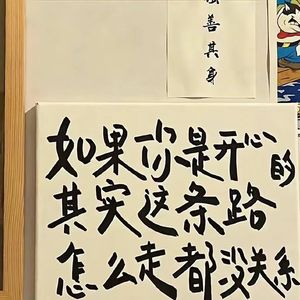 善其身
如果你是开心的
其实这条路
怎么走都没关系